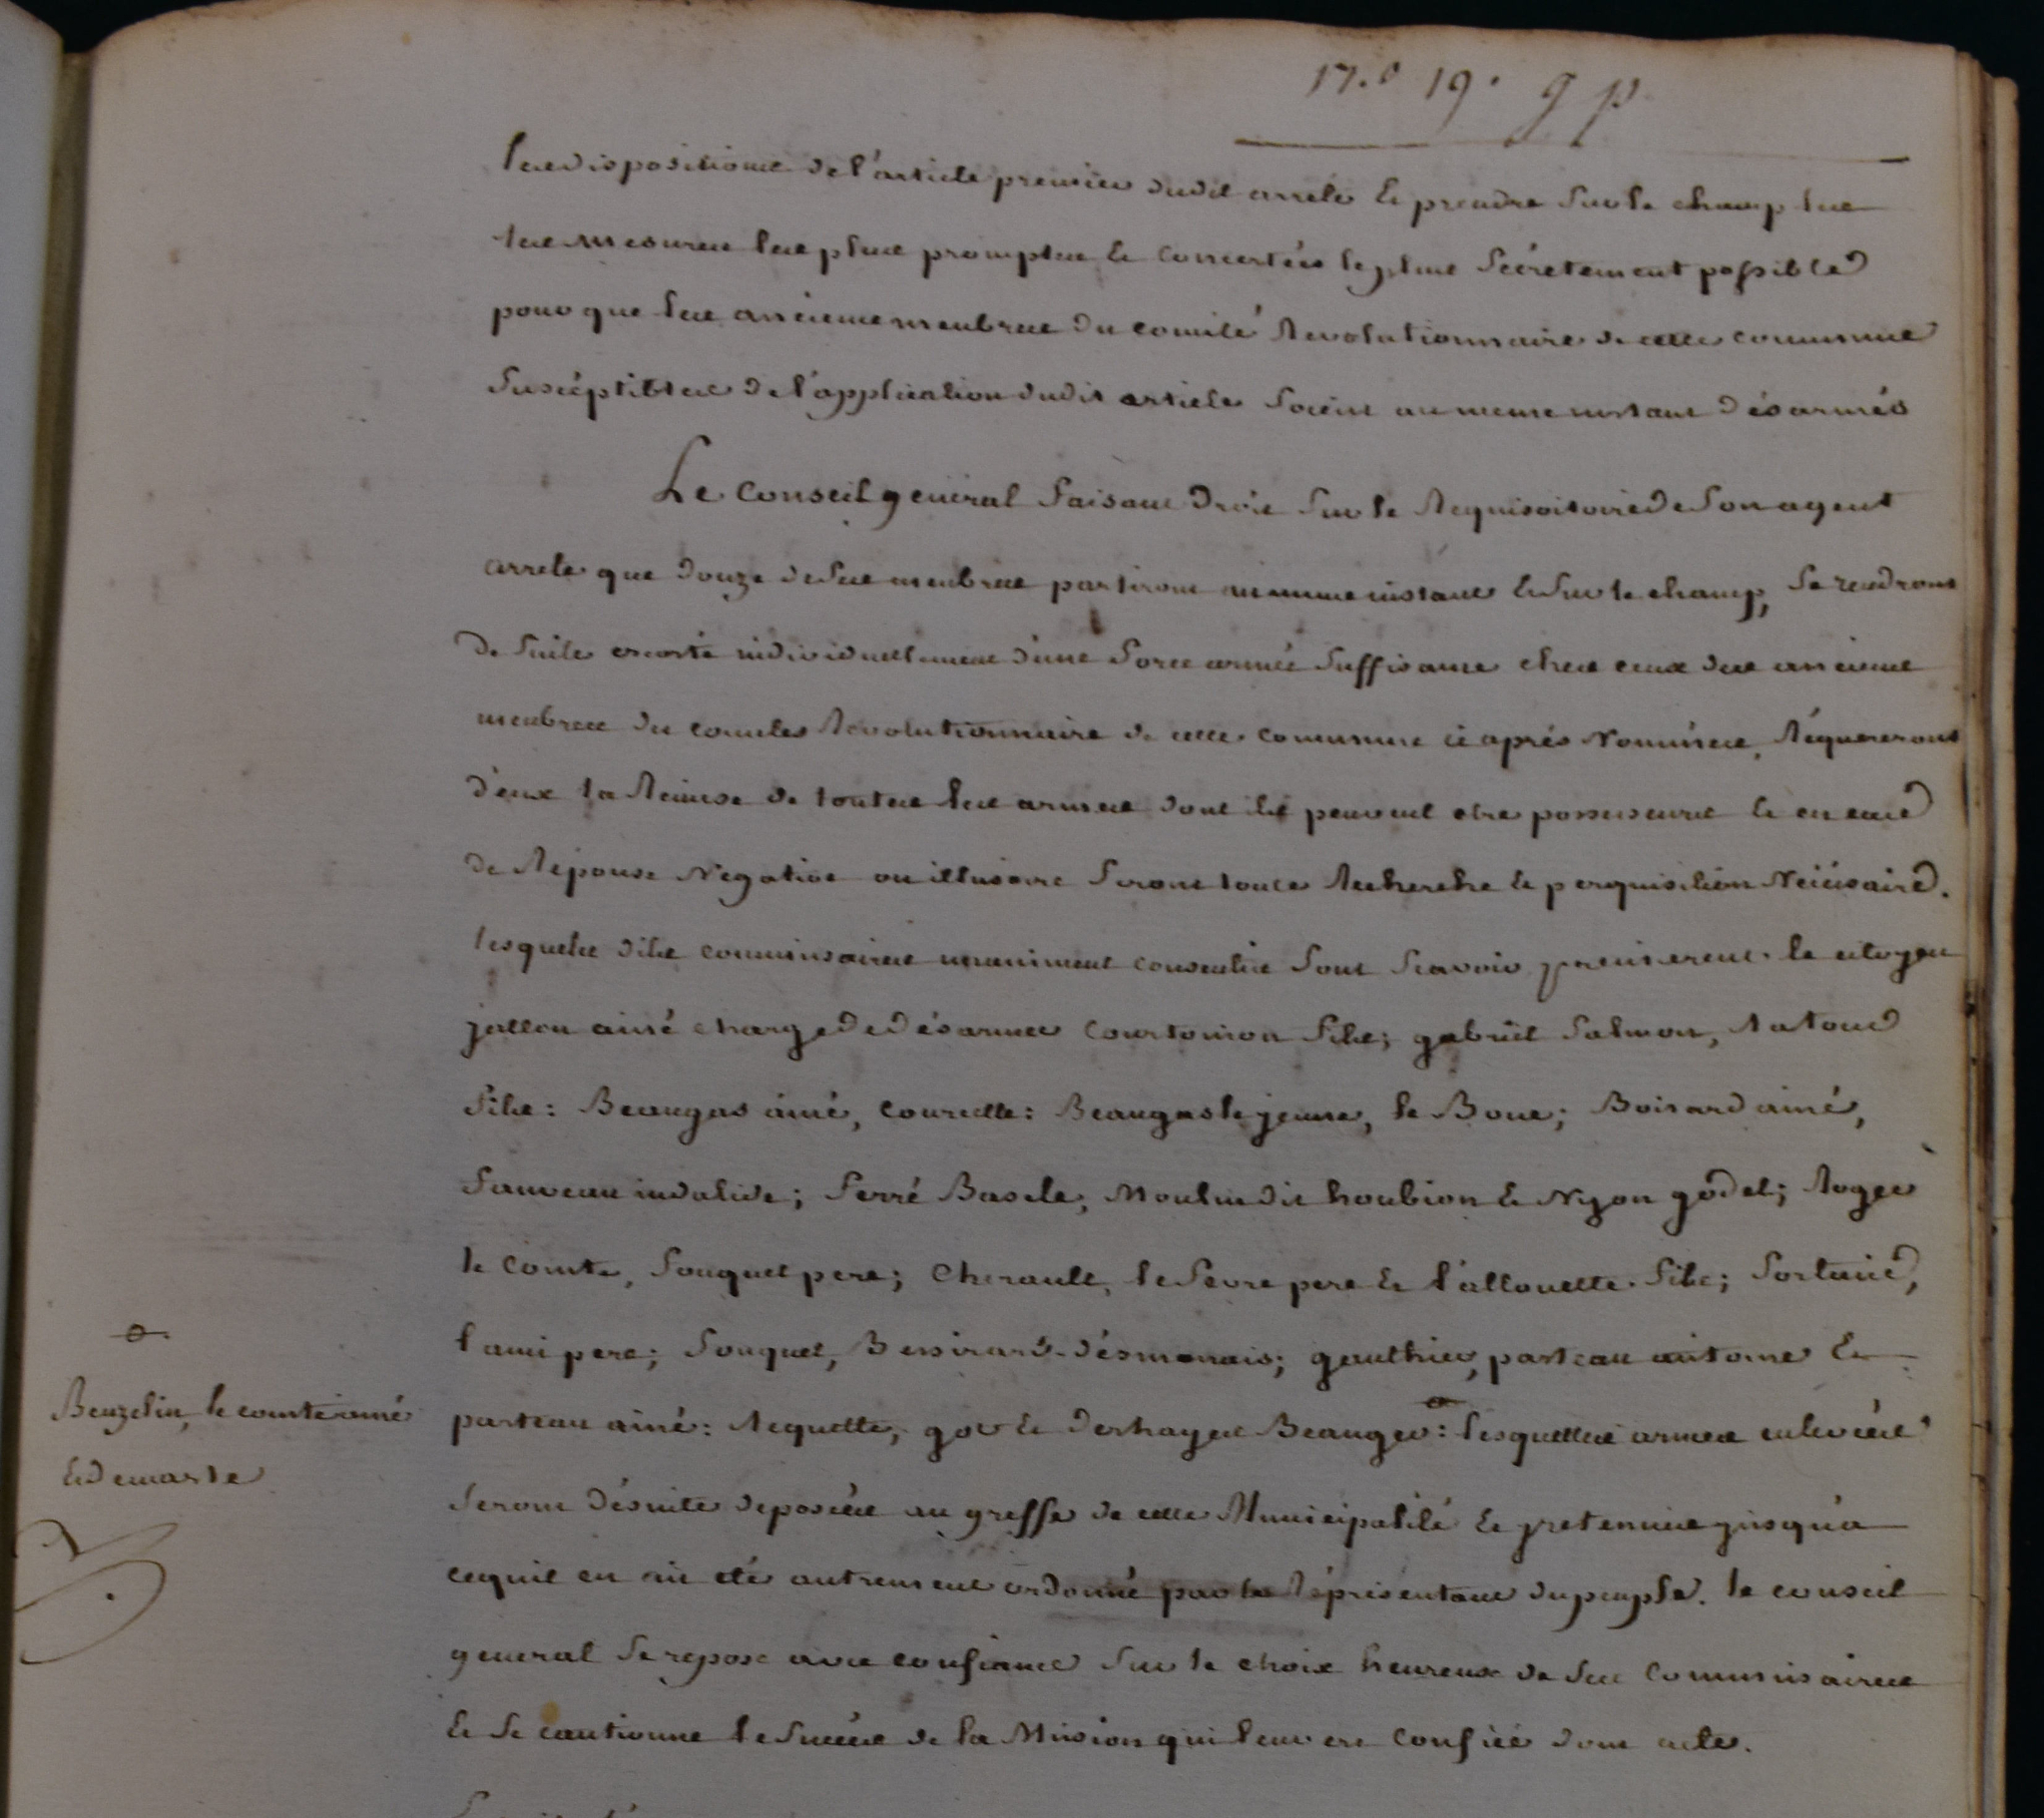 17.º 19. g p
les dispositions de l'article premier dudit arrêté et prendre sur le champ les
les mesures les plus promptes et concertées le plus secrètement possible
pour que les anciens membres du comité Revolutionnaire de cette commune
suscéptibles de l'application dudit article soient au meme instant désarmés
Le Conseil général faisant droit sur le Requisoitoire de son agent
arrete que douze de ses membres partiront au meme instant et sur le champ, se rendront
de suite escorté individuellement d'une force armée suffisante chez ceux des anciens
membres du comités Revolutionnaire de cette commune ci après Nommées, Réquereront
d'eux la Remise de toutes les armes dont ils peuvent etre possesseurs et en cas
de Réponse Négative ou illusoire feront toute Recherche et perquisition Nécésaire.
lesquels dits commissaires unaniment consentis sont scavoir premierent. le citoyen
jallon ainé chargé de désarmer Courtoision fils; gabriel Salmon, Latour
fils: Beaugas ainé, Courcelle: Beaugas le jeune, le Boue; Boisard ainé,
Sauveau invalide; Ferré Basile, Moulin dit houbion et Nyon godet; Roger
le Comte, fouquet pere; Cherault, le fevre pere et l'allouette fils; fortuné,
l'ami pere; fouquet, Bessirard-désmarais; gauthier, parteau antoine et
parteau ainé: Requette, got et Deshayes Beauger: lesquelles armes enlevées
seront désuite deposées au greffe de cette Municipalité et retenues jusqu'a
cequil en ait été autrement ordonné par les Réprésentans du peuple. le conseil
general se repose avec confiance sur le choix heureux de ses Commissaires
et se cautionne le Succès de la Mission qui leur est Confiée dont acte.
Beuzelin, le comte ainé
et demarte